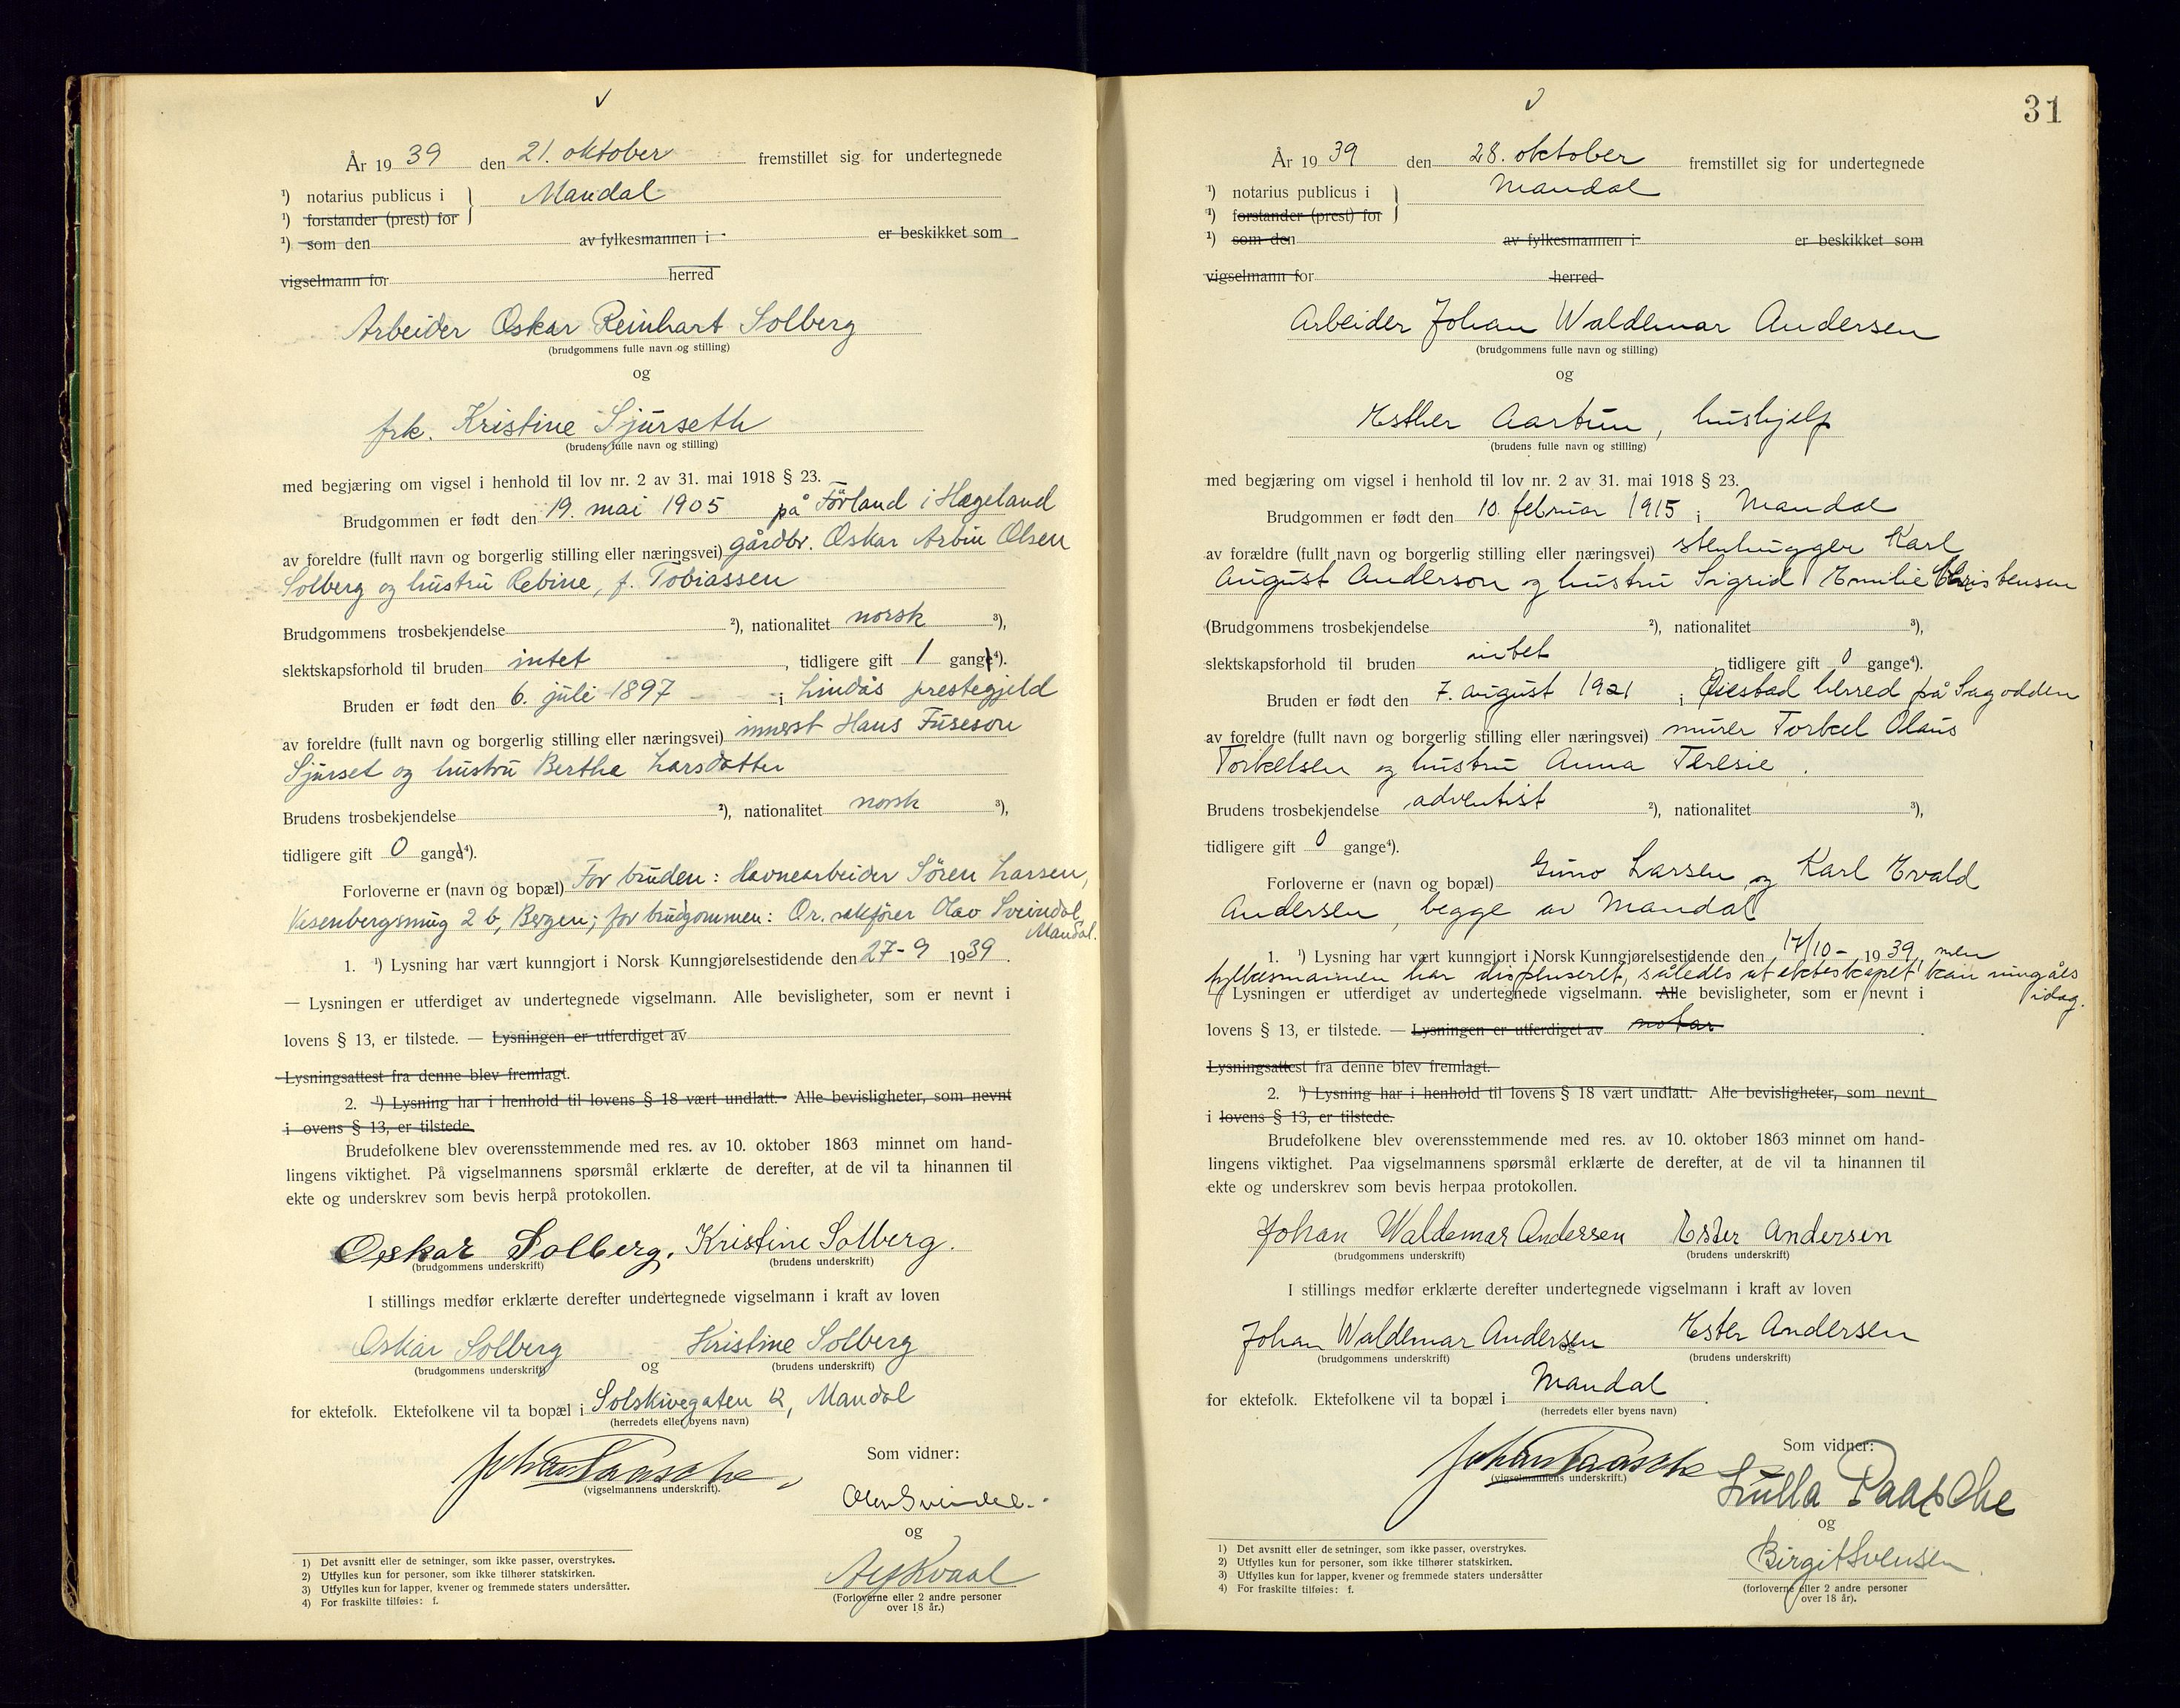 År 19 39 den 21. oktober fremstillet sig for undertegnede
¹) notarius publicus i Mandal
¹) forstander (prest) for
¹) som den av fylkesmannen i er beskikket som
vigselmann for herred
Arbeider Oskar Reinhart Solberg
(brudgommens fulle navn og stilling)
og
frk. Kristine Sjurseth
(brudens fulle navn og stilling)
med begjæring om vigsel i henhold til lov nr. 2 av 31. mai 1918 § 23.
Brudgommen er født den 19. mai 1905 på Förland i Hægeland
av foreldre (fullt navn og borgerlig stilling eller næringsvei) gårdbr. Oskar Arbin Olsen
Solberg og hustru Rebine, f. Tobiassen
Brudgommens trosbekjendelse ²), nationalitet norsk ³),
slektskapsforhold til bruden intet, tidligere gift 1 gang ⁴).
Bruden er født den 6. juli 1897 i Lindås prestegjeld
av foreldre (fullt navn og borgerlig stilling eller næringsvei) innerst Hans Fuseson
Sjurset og hustru Bertha Larsdatter
Brudens trosbekjendelse ²), nationalitet norsk ³),
tidligere gift 0 gang ⁴).
Forloverne er (navn og bopæl) For bruden: Havnearbeider Sören Larsen,
Vesenbergsmug 2 b, Bergen; for brudgommen: Or. sakfører Olav Sveindal
Mandal.
1. ¹) Lysning har vært kunngjort i Norsk Kunngjørelsestidende den 27-9 1939.
— Lysningen er utferdiget av undertegnede vigselmann. Alle bevisligheter, som er nevnt i
lovens § 13, er tilstede. — Lysningen er utferdiget av
Lysningsattest fra denne blev fremlagt.
2. ¹) Lysning har i henhold til lovens § 18 vært undlatt. Alle bevisligheter, som nevnt
i ovens § 13, er tilstede.
Brudefolkene blev overensstemmende med res. av 10. oktober 1863 minnet om hand-
lingens viktighet. På vigselmannens spørsmål erklærte de derefter, at de vil ta hinannen til
ekte og underskrev som bevis herpå protokollen.
Oskar Solberg. Kristine Solberg.
(brudgommens underskrift) (brudens underskrift)
I stillings medfør erklærte derefter undertegnede vigselmann i kraft av loven
Oskar Solberg og Kristine Solberg
(brudgommens underskrift) (brudens underskrift)
for ektefolk. Ektefolkene vil ta bopæl i Solskivegaten 12, Mandal
(herredets eller byens navn)
Som vidner:
Johan Paasche
(vigselmannens underskrift).
Olav Sveindal.
og
Alf Kvaal
(Forloverne eller 2 andre personer
over 18 år.)
1) Det avsnitt eller de setninger, som ikke passer, overstrykes.
2) Utfylles kun for personer, som ikke tilhører statskirken.
3) Utfylles kun for lapper, kvener og fremmede staters undersåtter.
4) For fraskilte tilføies: f.
31
År 19 39 den 28. oktober fremstillet sig for undertegnede
¹) notarius publicus i Mandal
¹) forstander (prest) for
¹) som den av fylkesmannen i er beskikket som
vigselmann for herred
Arbeider Johan Waldemar Andersen
(brudgommens fulle navn og stilling)
og
Esther Aartun, hushjelp
(brudens fulle navn og stilling)
med begjæring om vigsel i henhold til lov nr. 2 av 31. mai 1918 § 23.
Brudgommen er født den 10. februar 1915 i Mandal
av forældre (fullt navn og borgerlig stilling eller næringsvei) stenhugger Karl
August Anderson og hustru Sigrid Emilie Christensen
(Brudgommens trosbekjendelse ²), nationalitet ³),
slektskapsforhold til bruden intet, tidligere gift 0 gange⁴).
Bruden er født den 7. august 1921 i Øiestad herred på Sagodden
av foreldre (fullt navn og borgerlig stilling eller næringsvei) murer Torkel Olaus
Torkelsen og hustru Anna Teresie.
Brudens trosbekjendelse adventist ²), nationalitet ³),
tidligere gift 0 gange⁴).
Forloverne er (navn og bopæl) Guno Larsen og Karl Evald
Andersen, begge av Mandal
1. ¹) Lysning har vært kunngjort i Norsk Kunngjørelsestidende den 17/10 - 1939, men
fylkesmannen har dispensert, således at ekteskapet kan inngåes
idag.
Lysningen er utferdiget av undertegnede vigselmann. Alle bevisligheter, som er nevnt i
lovens § 13, er tilstede. — Lysningen er utferdiget av notar.
Lysningsattest fra denne blev fremlagt.
2. ¹) Lysning har i henhold til lovens § 18 vært undlatt. Alle bevisligheter, som nevnt
i lovens § 13, er tilstede.
Brudefolkene blev overensstemmende med res. av 10. oktober 1863 minnet om hand-
lingens viktighet. Paa vigselmannens spørsmål erklærte de derefter, at de vil ta hinannen til
ekte og underskrev som bevis herpaa protokollen.
Johan Waldemar Andersen Ester Andersen
(brudgommens underskrift) (brudens underskrift)
I stillings medfør erklærte derefter undertegnede vigselmann i kraft av loven
Johan Waldemar Andersen Ester Andersen
(brudgommens underskrift) (brudens underskrift)
for ektefolk. Ektefolkene vil ta bopæl i Mandal.
(herredets eller byens navn)
Som vidner:
Johan Paasche
(vigselmannens underskrift.)
Lulla Paasche
og
Birgit Svensen
(forloverne eller 2 andre personer
over 18 år).
1) Det avsnitt eller de setninger, som ikke passer, overstrykes.
2) Utfylles kun for personer, som ikke tilhører statskirken.
3) Utfylles kun for lapper, kvener og fremmede staters undersåtter
4) For fraskilte tilføies: f.